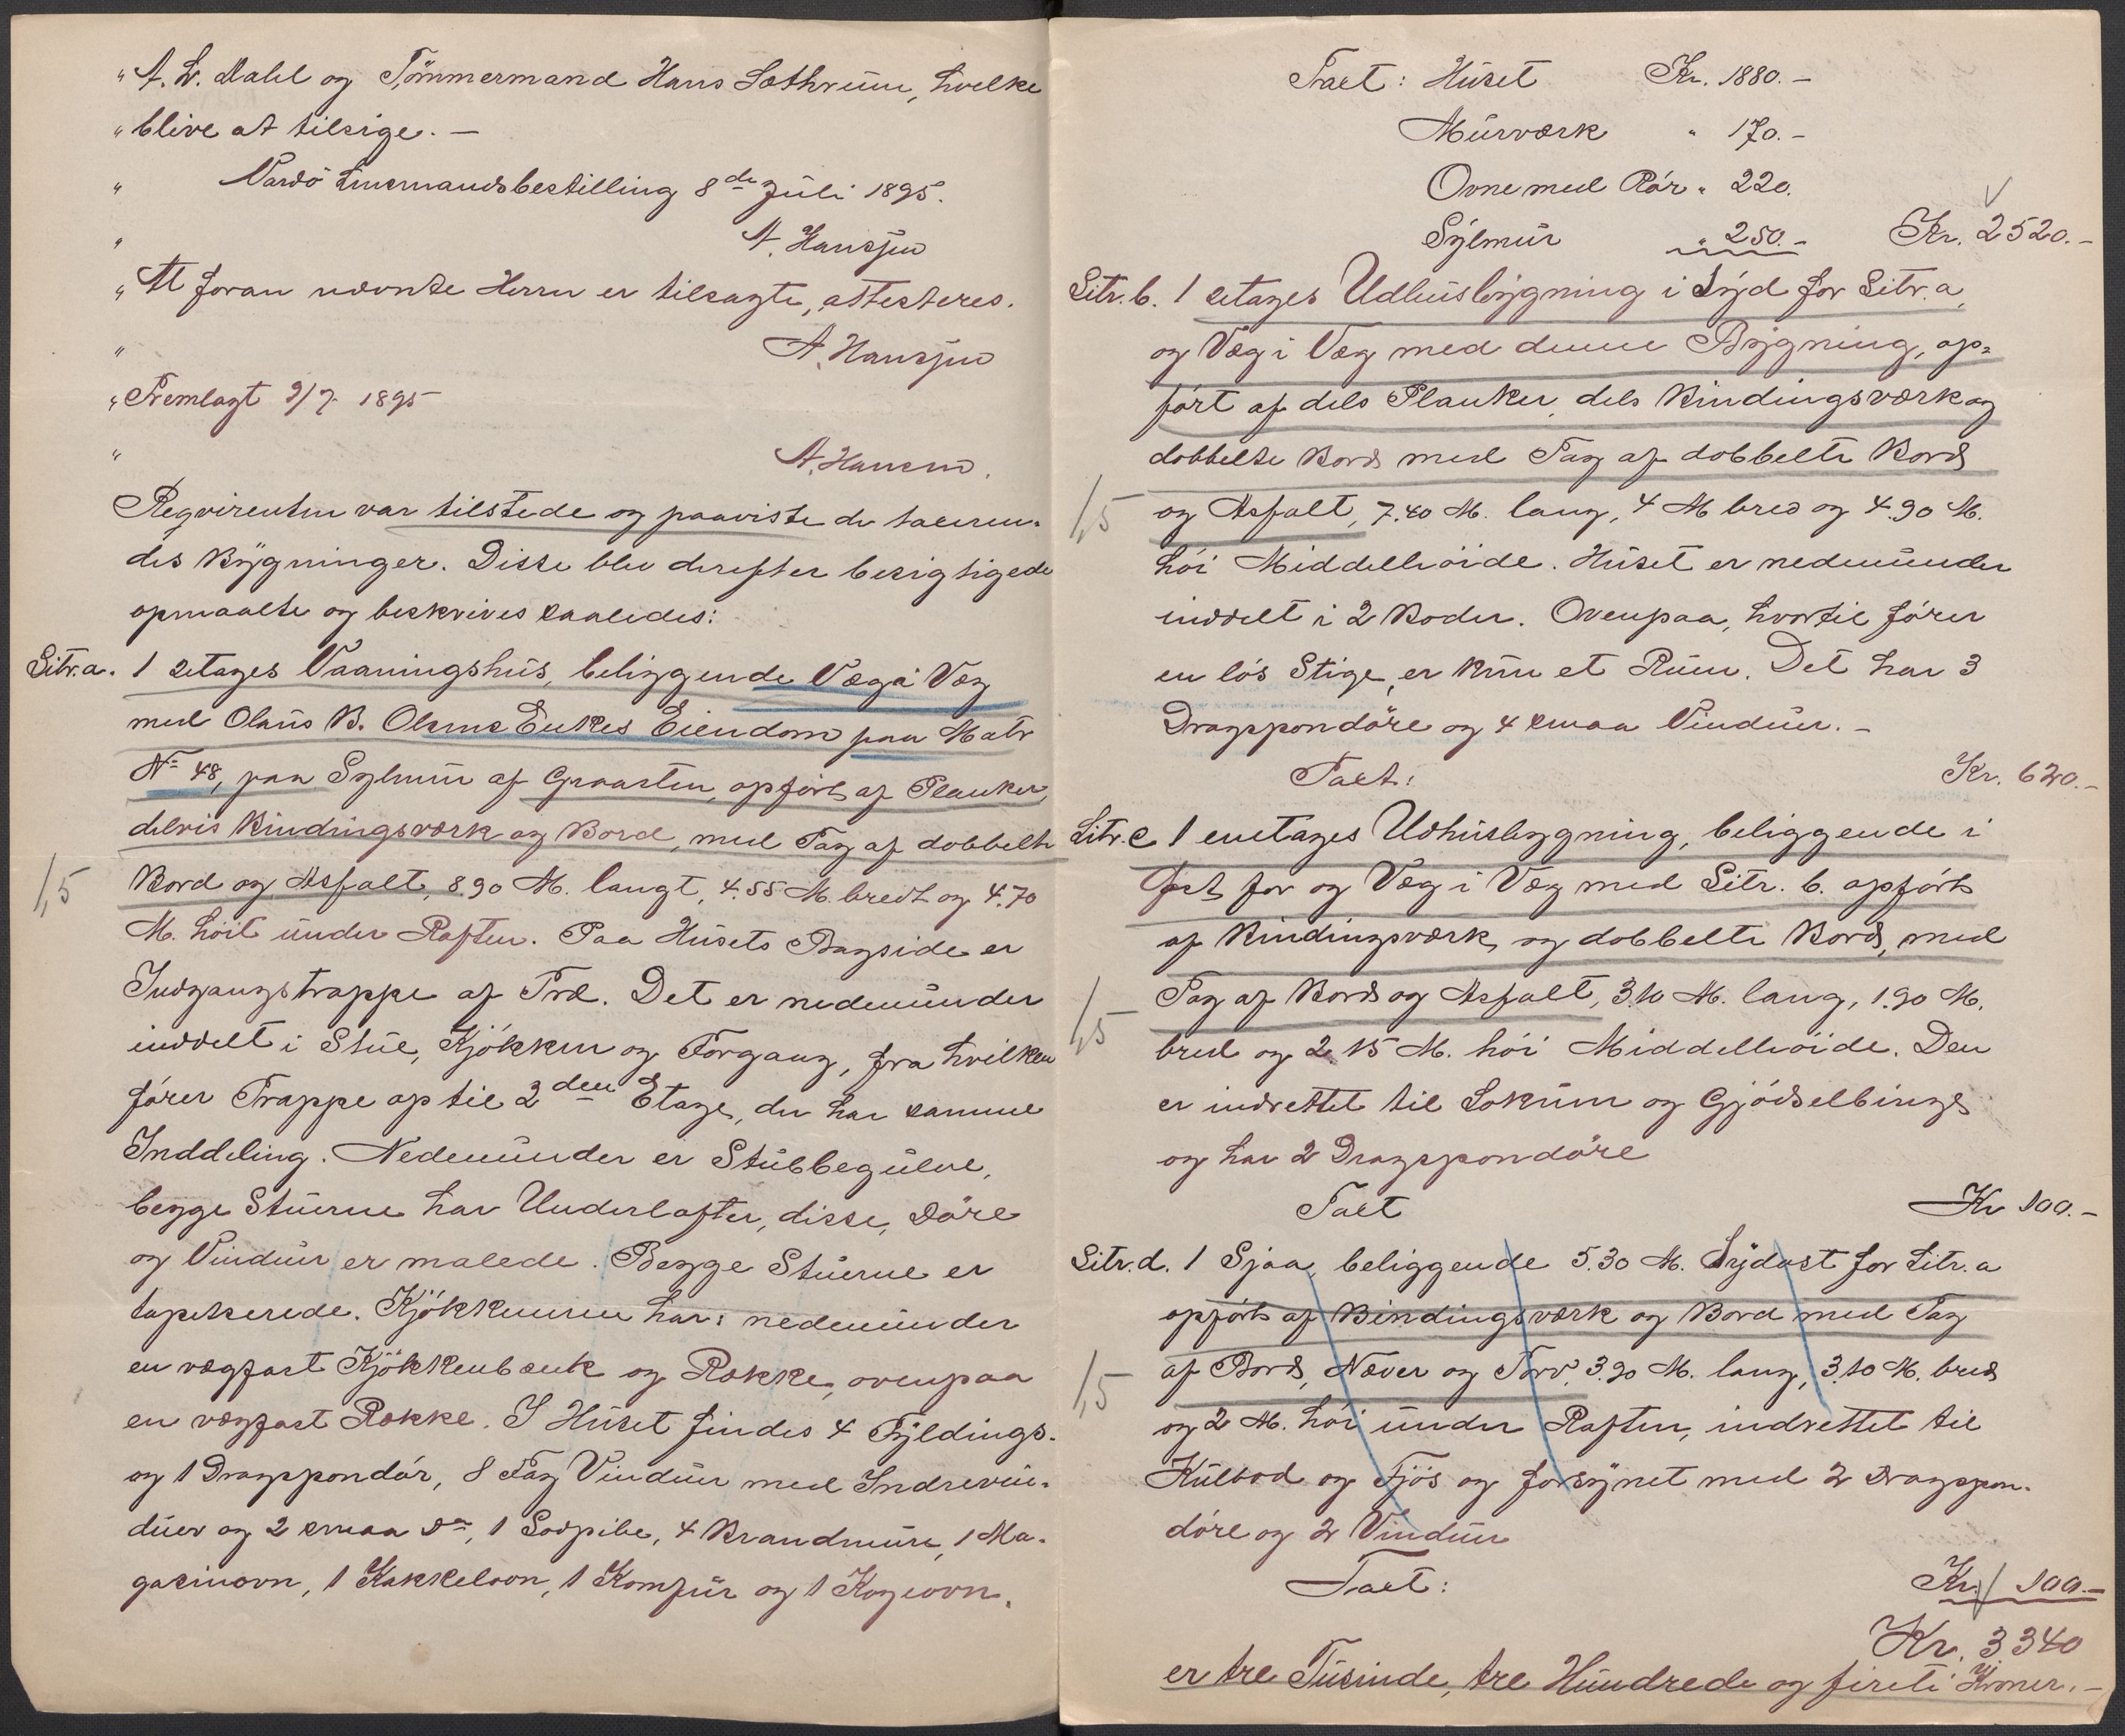 " A. W. Dahl og Tømmermand Hans Lothrum, hvilke
" blive at tilsige. —
" Vardö Lensmandsbestilling 8de Juli 1895.
" A. Hanssen
" At foran nævnte Herrer er tilsagte, attesteres.
" A. Hanssen
" Fremlagt 9/7 1895
" A. Hansen.
Reqvirenten var tilstede og paaviste de taxeren-
des Bygninger. Disse blev derefter besigtigede
opmaalte og beskrives saaledes:
Litr. a. 1 2etages Vaaningshus, beliggende Væg i Væg
med Olaus B. Olsens Enkes Eiendom paa Matr
No 48, paa Sylmur af Graasten, opført af Planker,
delvis Bindingsværk og Bord, med Tag af dobbelte
1,5 Bord og Asfalt, 8.90 M. langt, 4.55 M. bredt og 4.70
M. höit under Raften. Paa Husets Bagside er
Indgangstrappe af Træ. Det er nedenunder
inddelt i Stue, Kjökken og Forgang, fra hvilken
fører Trappe op til 2den Etage, der har samme
Inddeling. Nedenunder er Stubbegulve,
begge Stuerne har Underlofter, disse, Döre
og Vinduer er malede. Begge Stuerne er
tapetserede. Kjökkenerne har: nedenunder
en vægfast Kjökkenbænk og Række, ovenpaa
en vægfast Række. I Huset findes 4 Fyldings-
og 1 Dragspondør, 8 Fag Vinduer med Indrevin-
duer og 2 smaa do, 1 Sodpibe, 4 Brandmure, 1 Ma-
gasinovn, 1 Kakkelovn, 1 Komfur og 1 Kogeovn.
Taxt: Huset Kr. 1880.-
Murværk " 170.-
Ovne med Rör " 220.
Sylmur " 250.- Kr. 2520.-
Litr. b. 1 2etages Udhusbygning i Syd for Litr. a,
og Væg i Væg med denne Bygning, op-
ført af dels Planker, dels Bindingsværk og
dobbelte Bord med Tag af dobbelte Bord
1,5 og Asfalt, 7.40 M. lang, 4 M bred og 4.90 M.
höi Middelhöide. Huset er nedenunder
inddelt i 2 Boder. Ovenpaa, hvortil fører
en lös Stige, er kun et Rum. Det har 3
Dragspondöre og 4 smaa Vinduer. -
Taxt: Kr. 620.-
Litr. c 1 enetages Udhusbygning, beliggende i
Öst for og Væg i Væg med Litr. b. opført
af Bindingsværk og dobbelte Bord, med
1,5 Tag af Bord og Asfalt, 3.10 M. lang, 1.90 M.
bred og 2.15 M. höi Middelhöide. Den
er indrettet til Lokum og Gjödselbinge
og har 2 Dragspondöre
Taxt Kr 100.-
Litr. d. 1 Sjaa, beliggende 5.30 M. Sydost for Litr. a
opført af Bindingsværk og Bord med Tag
1,5 af Bord, Næver og Torv, 3.90 M. lang, 3.10 M. bred
og 2 M. höi under Raften, indrettet til
Kulbod og Fjös og forsynet med 2 Dragspon-
döre og 2 Vinduer
Taxt: Kr. 100.-
Kr. 3340
er tre Tusinde, tre Hundrede og firti Kroner. -